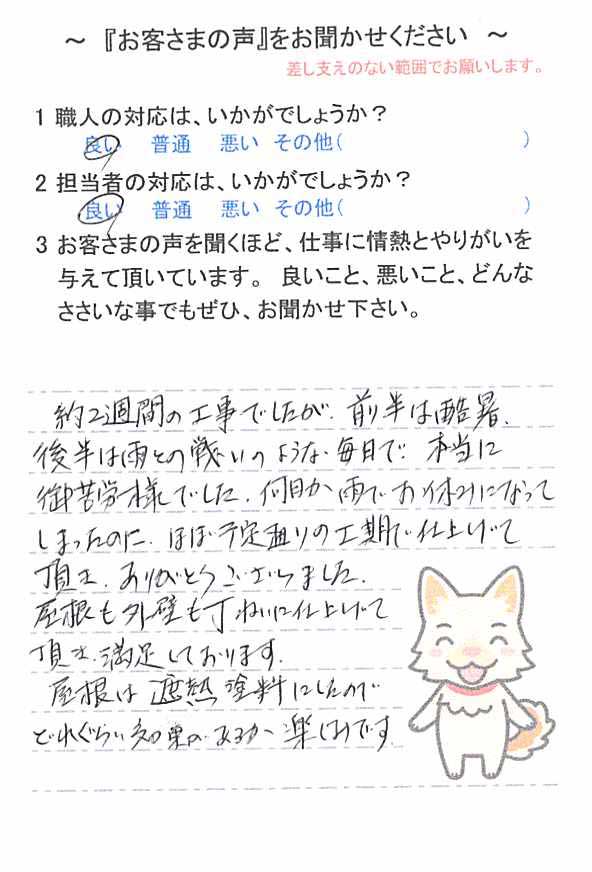 ～ 『お客さまの声』をお聞かせください ～
差し支えのない範囲でお願いします。
1 職人の対応は、いかがでしょうか？
良い 普通 悪い その他( )
2 担当者の対応は、いかがでしょうか？
良い 普通 悪い その他( )
3 お客さまの声を聞くほど、仕事に情熱とやりがいを
与えて頂いています。 良いこと、悪いこと、どんな
ささいな事でもぜひ、お聞かせ下さい。
約2週間の工事でしたが、前半は酷暑、
後半は雨との戦いのような毎日で、本当に
御苦労様でした。何日か雨でお休みになって
しまったのに、ほぼ予定通りの工期で仕上げて
頂き、ありがとうございました。
屋根も外壁も丁ねいに仕上げて
頂き、満足しております。
屋根は遮熱塗料にしたので
どれぐらい効果があるか楽しみです。